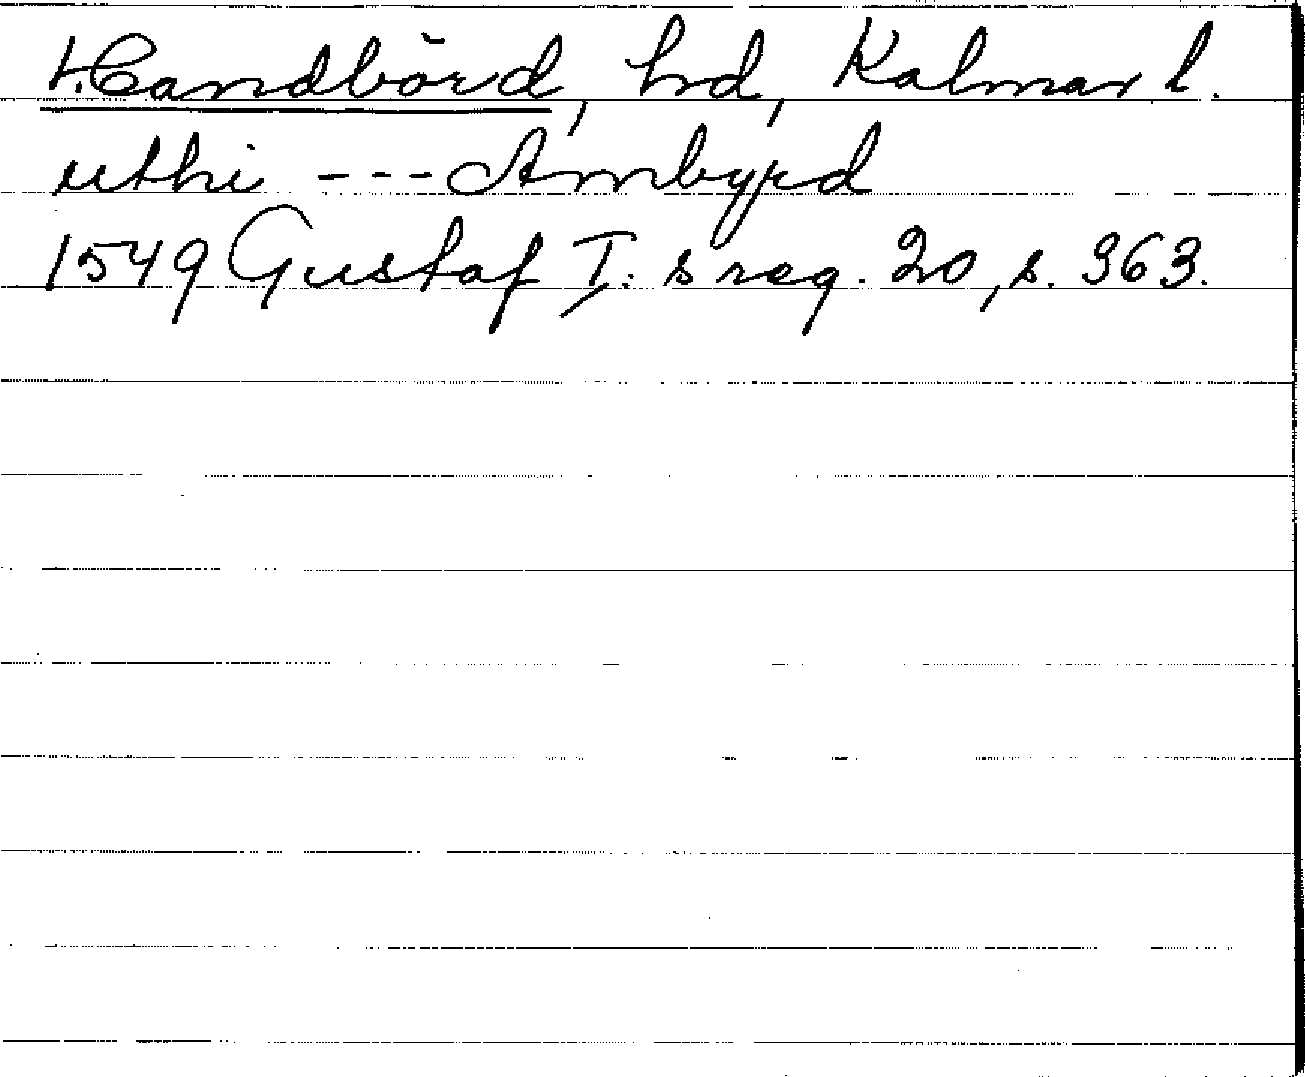 Handbörd, hd, Kalmar l.
uthi --- Ambyrd
1549 Gustaf I:s reg. 20, s. 363.